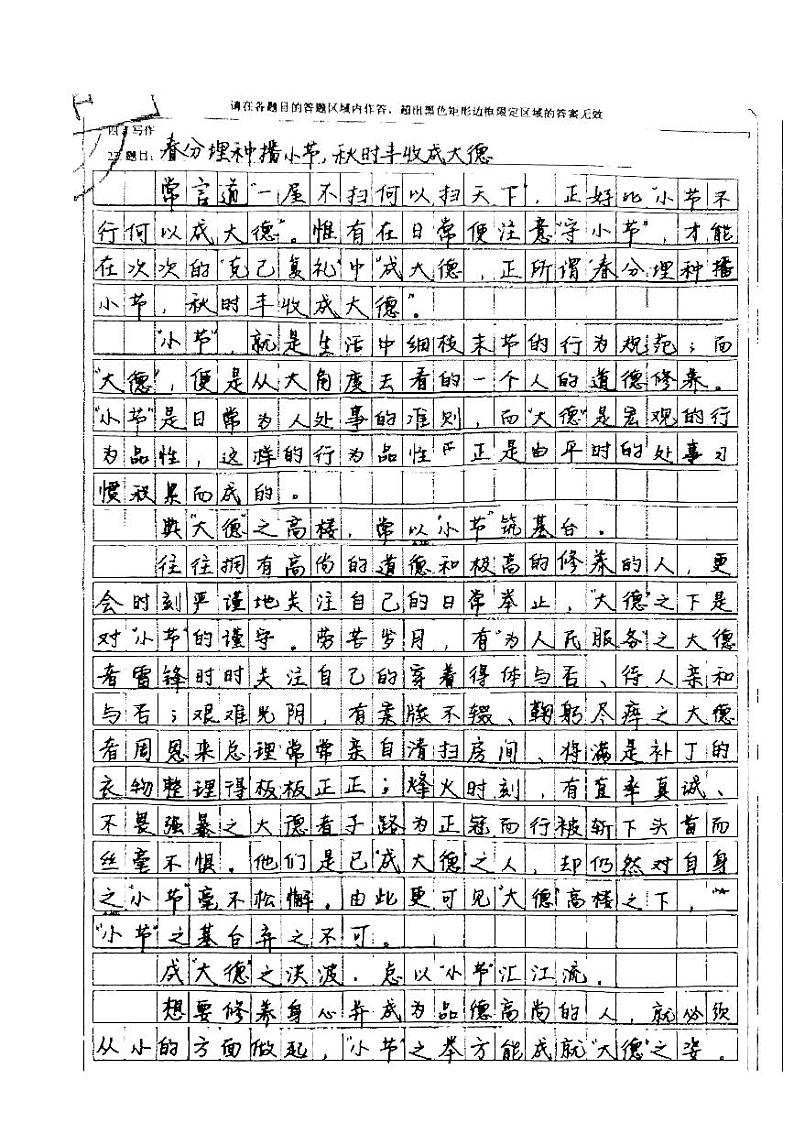 请在各题目的答题区域内作答，超出黑色矩形边框限定区域的答案无效
四、写作
题目：春分埋种播小节，秋时丰收成大德
常言道“一屋不扫何以扫天下”，正好比“小节不
行何以成大德”。惟有在日常便注意“守小节”，才能
在次次的“克己复礼”中“成大德，正所谓“春分埋种播
小节，秋时丰收成大德”。
“小节”，就是生活中细枝末节的行为规范；而
“大德”，便是从大角度去看的一个人的道德修养。
“小节”是日常为人处事的准则，而“大德”是宏观的行
为品性，这样的行为品性正是由平时的处事习
惯积累而成的。
奠“大德”之高楼，常以“小节”筑基台。
往往拥有高尚的道德和极高的修养的人，更
会时刻严谨地关注自己的日常举止，“大德”之下是
对“小节”的谨守。劳苦岁月，有“为人民服务”之大德
者雷锋时时关注自己的穿着得体与否、待人亲和
与否；艰难光阴，有柔牍不辍、鞠躬尽瘁之大德
者周恩来总理常常亲自清扫房间、将满是补丁的
衣物整理得板板正正；烽火时刻，有直率真诚、
不畏强暴之大德者子路为正冠而行被斩下头首而
丝毫不惧。他们是已“成大德”之人，却仍然对自身
之“小节”毫不松懈。由此更可见“大德”高楼之下，
“小节”之基台弃之不可。
成“大德”之淡波，总以“小节”汇江流。
想要修养身心并成为品德高尚的人，就必须
从小的方面做起，“小节”之举方能成就“大德”之姿。